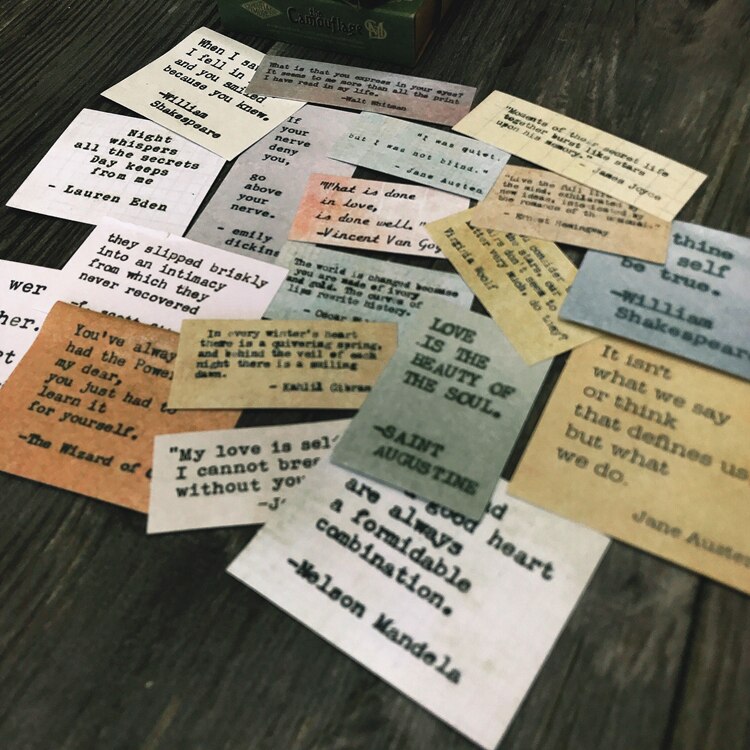 the
Camouflage
When I sa
I fell in
and you smiled
because you knew.
-William
Shakespeare
What is that you express in your eyes?
It seems to me more than all the print
I have read in my life.
-Walt Whitman
"Moments of their secret life
together burst like stars
upon his memory."
- James Joyce
Night
whispers
all the secrets
Day keeps
from me
- Lauren Eden
If
your
nerve
deny
you,
go
above
your
nerve.
- emily
dickins
"I was quiet,
but I was not blind."
- Jane Austen
"What is done
in love,
is done well."
-Vincent Van Gog
"Live the full life
the mind,
new ideas,
the romance of the unusual."
-Ernest Hemingway
Virginia Woolf
thine
self
be true.
-William
Shakespeare
they slipped briskly
into an intimacy
from which they
never recovered
The world is changed because
you are made of ivory
and gold. The curves of
lips rewrite history.
- Oscar
wer
her.
et
You've alway
had the Power
my dear,
you just had to
learn it
for yourself.
-The Wizard of
In every winter's heart
there is a quivering spring,
and behind the veil of each
night there is a smiling
dawn.
- Kahlil Gibran
LOVE
IS THE
BEAUTY OF
THE SOUL.
-SAINT
AUGUSTINE
It isn't
what we say
or think
that defines us
but what
we do.
Jane Austen
"My love is self
I cannot brea
without you
-J
good heart
are always
a formidable
combination.
-Nelson Mandela